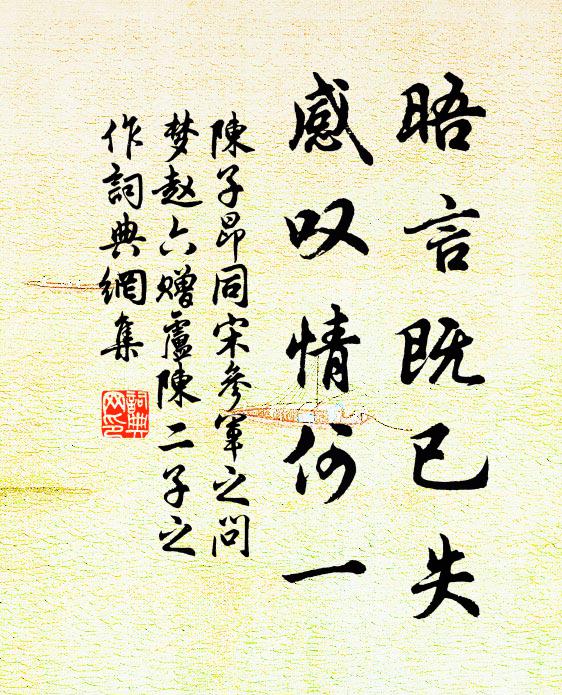 晤言既已失
感叹情何一
陳子昂同宋参軍之問
梦赵六赠盧陳二子之
作詞典網集
詞典网印